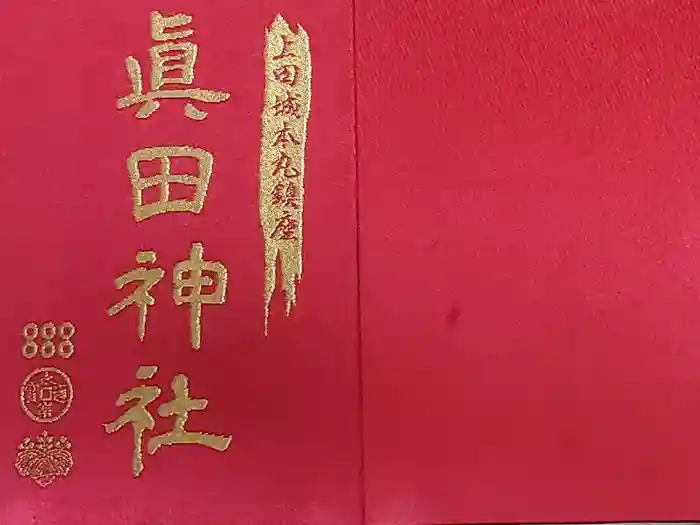 上田城本丸鎮座
眞田神社